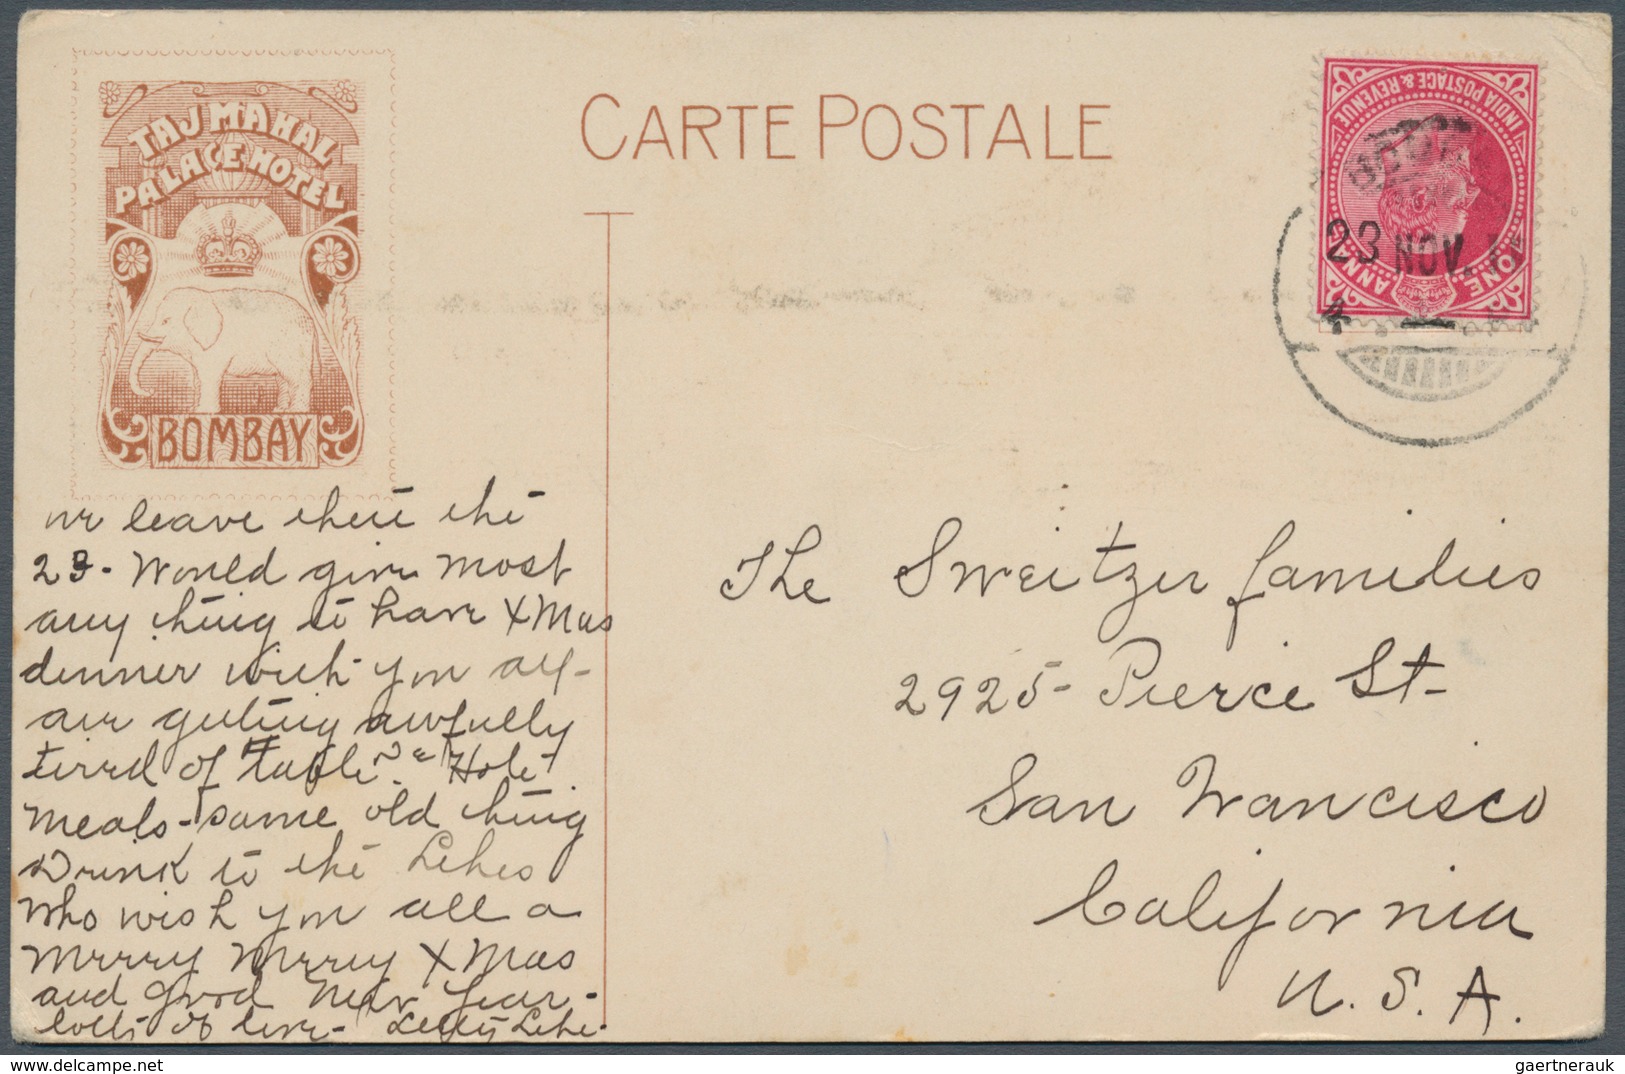 TAJ MAHAL
PALACE HOTEL
BOMBAY
CARTE POSTALE
INDIA POSTAGE & REVENUE
ONE ANNA
23 NOV.
we leave here the
23- Would give most
any thing to have XMas
dinner with you all-
are getting awfully
tired of "table de Hote"
meals- same old thing
Drink to the Lehes
who wish you all a
Merry Merry XMas
and good New Year-
lots of love-
The Sweitzer families
2925- Pierce St-
San Francisco
California
U. S. A.
gaertnerauk / delcampe.net